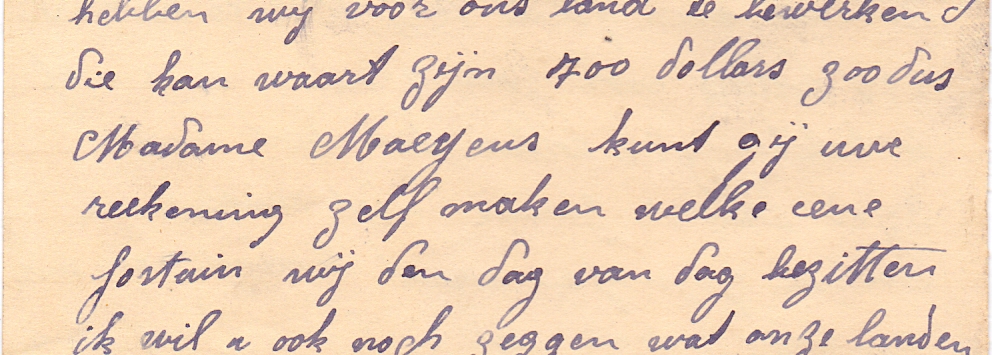 hebben wij voor ons land te bewerken d
die kan waart zijn 700 dollars zoo dus
Madame Maeyens kunt gij uwe
reekening zelf maken welke eene
fortuin wij den dag van dag bezitten
ik wil u ook noch zeggen wat onze landen